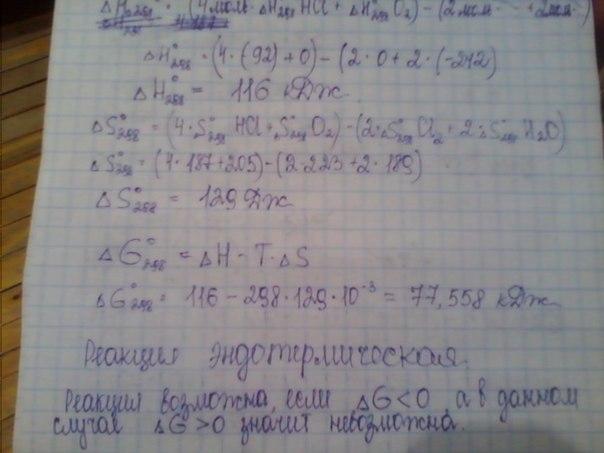 ΔH°298 = (4моль·ΔH298 HCl + ΔH°298 O2) − (2моль · +2моль·)
ΔH°298 = (4·(92)+0) − (2·0 + 2·(-242)
ΔH°298 = 116 кДж
ΔS°298 = (4·S°298 HCl + S°298 O2) − (2·ΔS°298 Cl2 + 2·ΔS°298 H2O)
ΔS°298 = (4·187+205)−(2·223+2·189)
ΔS°298 = 129 Дж
ΔG°298 = ΔH − T·ΔS
ΔG°298 = 116 − 298·129·10⁻³ = 77,558 кДж
Реакция эндотермическая.
Реакция возможна, если ΔG<0, а в данном
случае ΔG>0 значит невозможна.